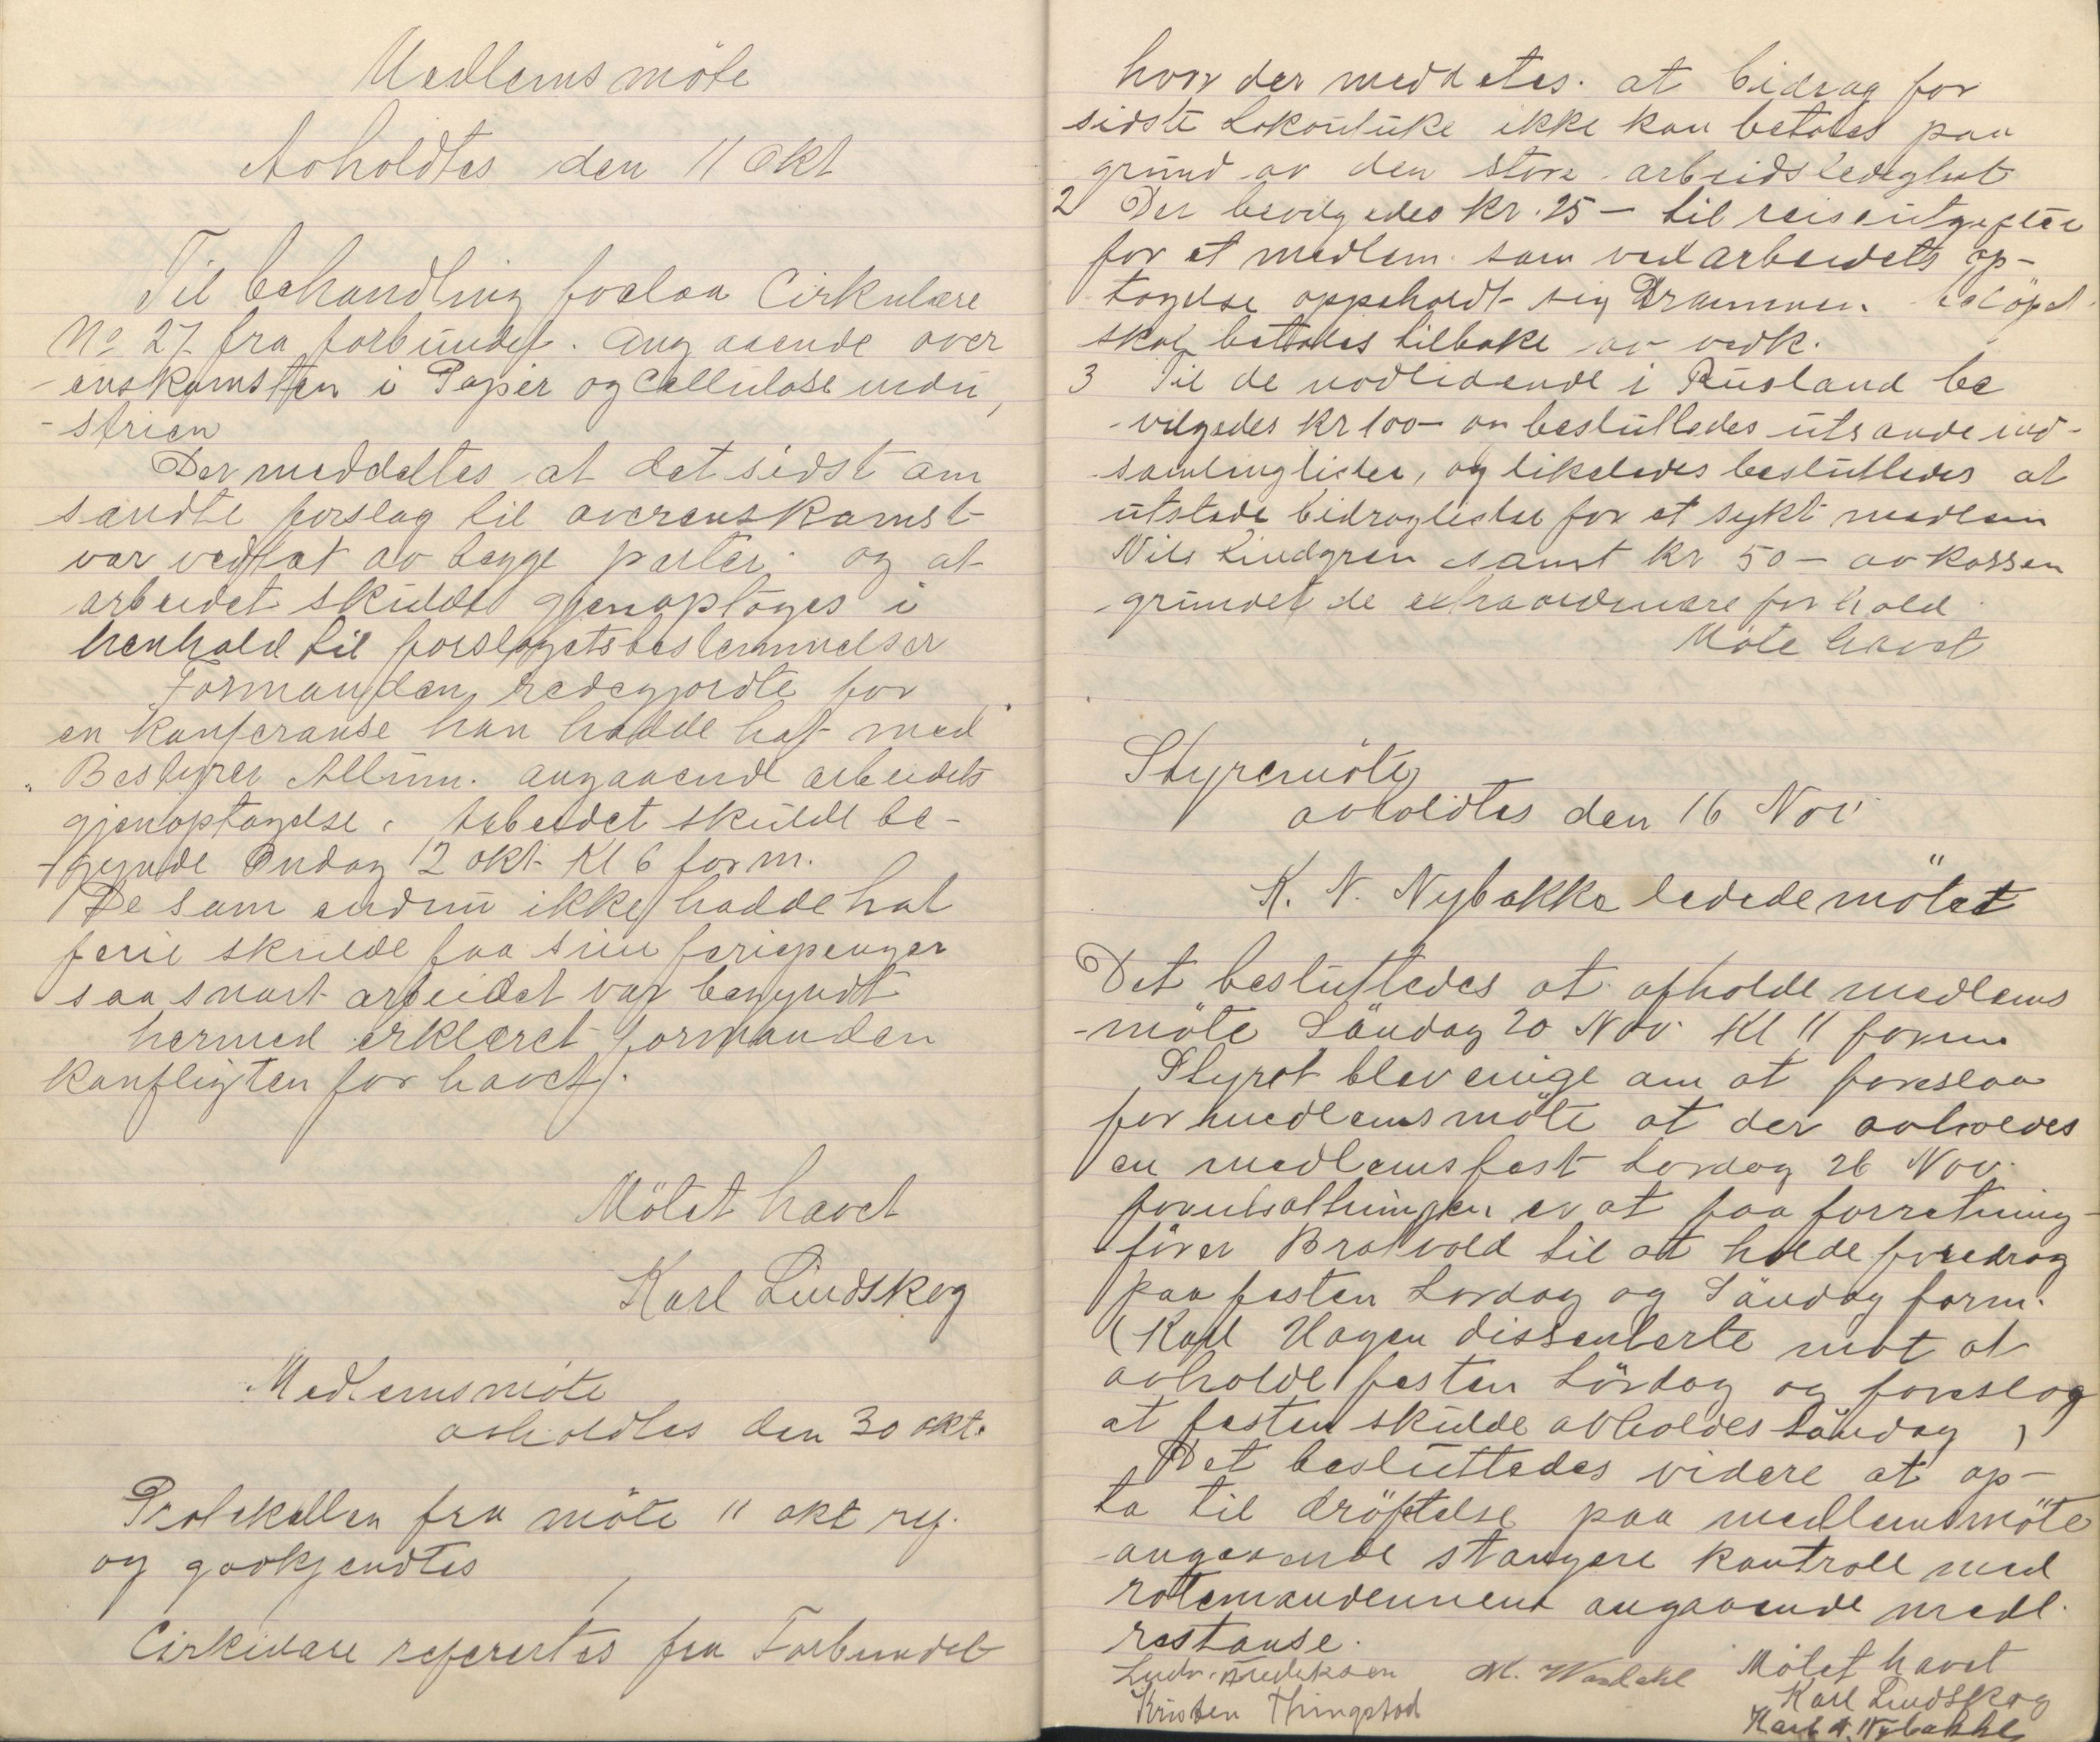 Medlemsmöte
Avholdtes den 11 Okt
Til behandling forelaa Cirkulære
No 27 fra forbundet. Angaaende over
-enskomsten i Papir og Cellulose indu,
-strien
Der meddeltes at det sidst om
sendte forslag til overenskomst
var vedtat av begge parter. og at
arbeidet skulde gjenoptages i
henhold til forslagets bestemmelser
Formanden redegjordte for
en konferanse han hadde hat med
Bestyrer Allum. angaaende arbeidets
gjenoptagelse. Arbeidet skulde be-
-gynde Onsdag 12 okt Kl 6 form.
De som endnu ikke hadde hat
ferie skulde faa sine feriepenger
saa snart arbeidet var begyndt
hermed erklæret formanden
konfligten for hævet.
Mötet hævet
Karl Lindskog
Medlemsmöte
avholdtes den 30 okt.
Protokollen fra möte 11 okt ref.
og godkjendtes
Cirkulære refererte​s fra Forbundet
hvor der meddeles. at bidrag for
sidste Lokoutuke ikke kan betales paa
grund av den store arbeidsledighet
2 Der bevilgedes Kr. 25 - til reiseutgifter
for et medlem. som ved arbeidets op-
tagelse oppeholdt sig Drammen. belöpet
skal bettales tilbake av vedk.
3 Til de nødlidende i Rusland be
-vilgedes Kr 100- og besluttedes utsende ind-
samlinglister, og likeledes besluttedes at
utstede bidraglister for et sykt medlem
Nils Lindgren samt Kr 50 - av kassen
-grundet de extraordinære forhold
Möte hævet
Styremöte
avholdtes den 16 Nov
K. N. Nybakke ledede mötet
Det besluttedes at afholde medlems
-möte Söndag 20 Nov. Kl 11 form
Styret blev enige om at foreslaa
for medlemsmöte at der avholdes
en medlemsfest Lördag 26 Nov.
forutsættningen er at faa forretning-
-förer Bratvold til at holde foredrag
paa festen Lördag og Söndag form.
(Karl Hagen dissenterte mot at
avholde festen Lördag og foreslog
at festen skulde avholdes Söndag )
Det besluttedes videre at op-
ta til dröftelse paa medlemsmöte
-angaaende strangere kontroll med
rotemændennene angaaende medl.
restanse.
Mötet hævet
Ludv. Fredriksen M. Wardahl Karl Lindskog
Kristen Thingstad Karl N. Nybakke